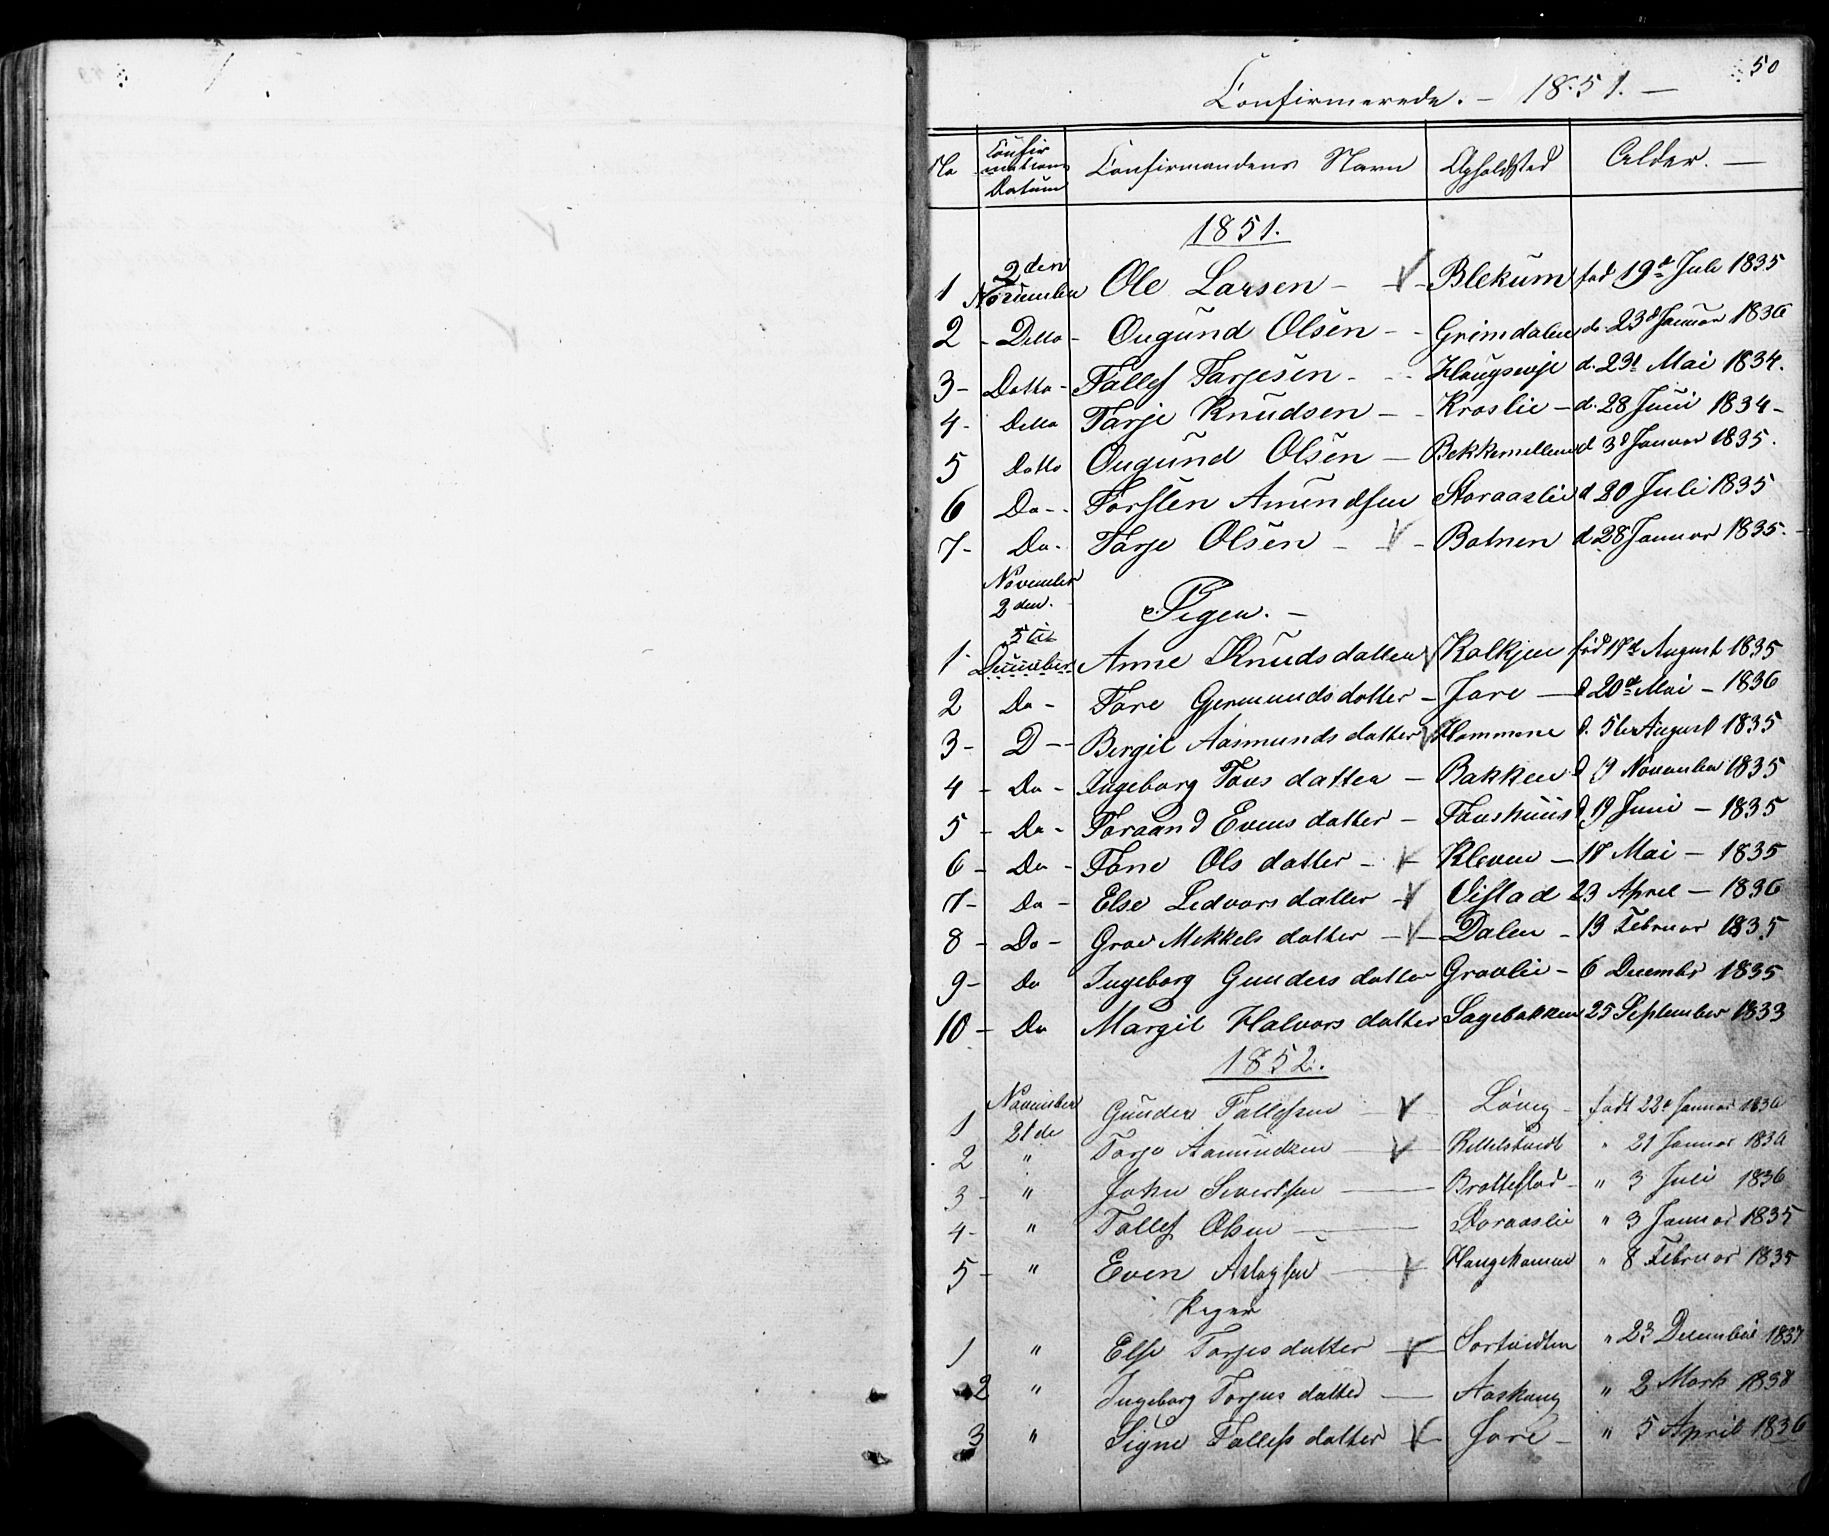 50
Confirmerede. - 1851. -
No Confirmations Datum Confirmandens Navn Opholdsted Alder. -
1851.
1 2den November Ole Larsen - - Blekum fød 19de Juli 1835
2 - Ditto - Ougund Olsen - - Grimdalen d. 23d Januar 1836
3 - Ditto - Tallef Tarjesen - - - Haugseje d. 23d Mai 1834.
4 - Ditto Tarje Knudsen - - Kroslie - d. 28 Juni 1834 -
5 Ditto Ougund Olsen - Bekkemellem d 3d Januar 1835.
6 Do - - Torsten Amundsen Storaaslie d 20 Juli 1835
7 - Do. Tarje Olsen - - - Botnen d 28 Januar 1835. -
November 2den. Pigen. -
1 - 5te December Anne Knudsdatter Kalkjen fød 18de August 1835
2 Do - Tore Gjermundsdatter - Jore - d 20de Mai - 1836
3 - D - - Bergit Aasmundsdatter Hommene d. 5te August 1835
4 - Do - Ingeborg Tovsdatter - Bakken d 9 November 1835
5 - Do - Toraand Evensdatter - Tovshuus d 19 Juni - 1835
6 - Do - Tone Olsdatter - - Kleven - 18 Mai - 1835
7 - Do - Else Ledvorsdatter - Vistad 23 April - 1836
8 - Do - Groe Mikkelsdatter - - Dalen - 13 Februar 1835
9 - Do Ingeborg Gundersdatter Gravlie - 6 Decembr 1835
10 - Do Margit Halvorsdatter Sagebakken 25 September 1833
1852.
1 November 21de Gunder Tallefsen - Løvej - født 22d Januar 1836
2 " Torje Aamundsen - Kittelstvedt " 21 Januar 1836
3 - " John Sivertsen - Brottestad - " 3 Juli 1836
4 - " Tallef Olsen - Storaaslie " 3 Januar 1835
5 - " Even Aslagsen - Haugekomme " 8 Februar 1835
Piger
1 " Else Torjesdatter - Sortvedten " 23 December 1837
2 " Ingeborg Torjusdatter - " 2 Marts 1838
3 " Signe Tallefsdatter - Jore - " 5 April 1836